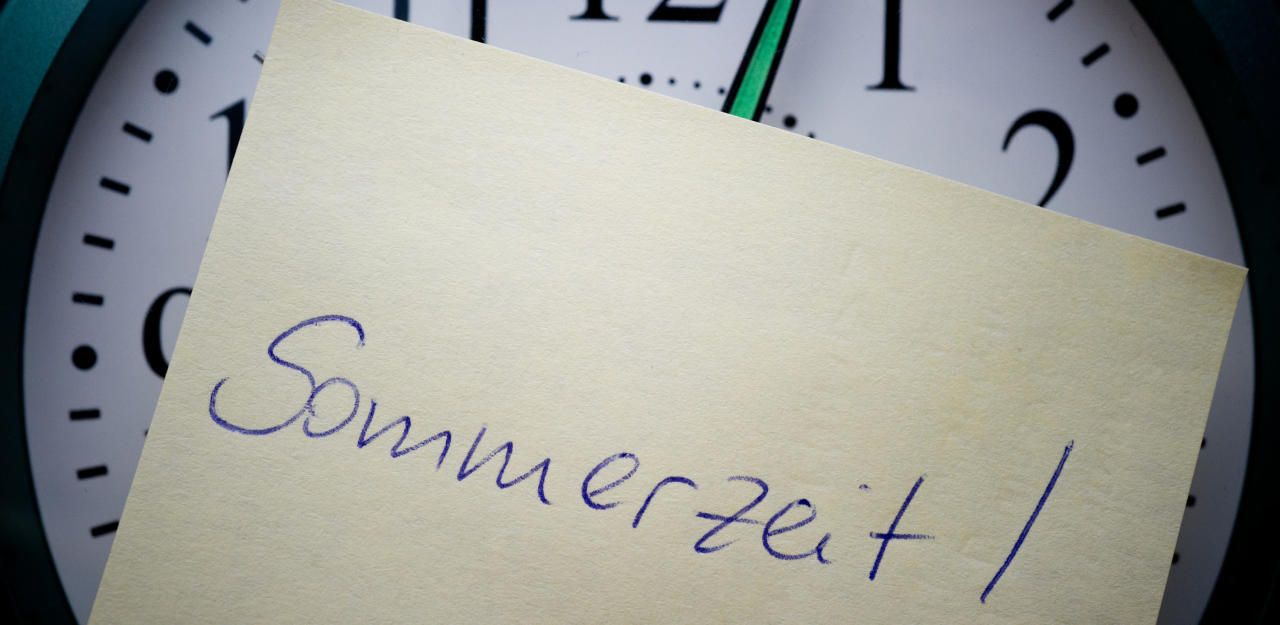 12
1
2
Sommerzeit /